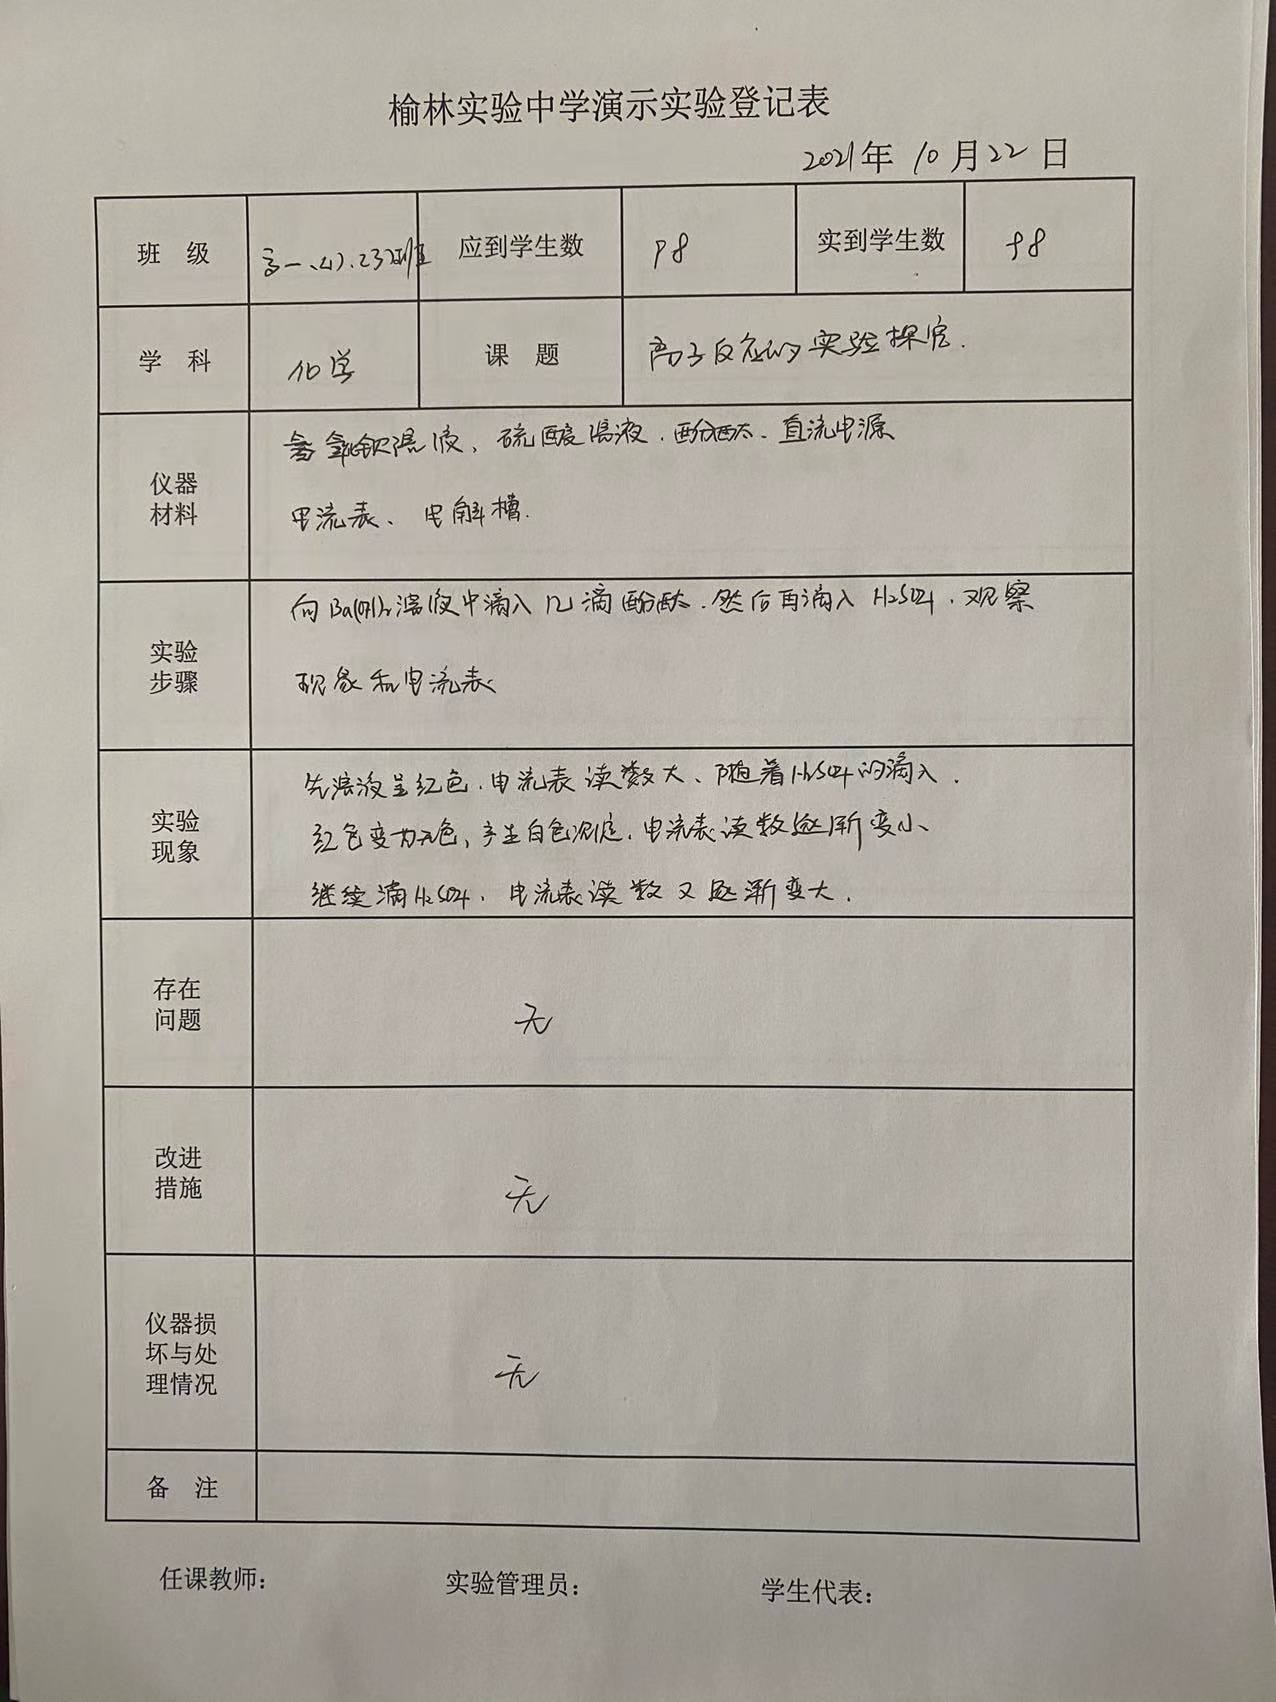 榆林实验中学演示实验登记表
2021年 10月22日
班 级 高一、 应到学生数 98 实到学生数 98
学 科 化学 课 题 离子反应的实验探究.
仪器材料 氢氧化钡溶液、硫酸溶液.酚酞.直流电源
电流表、电解槽.
实验步骤 向Ba(OH)2溶液中滴入几滴酚酞.然后再滴入H2SO4.观察
现象和电流表
实验现象 先溶液呈红色.电流表读数大、随着H2SO4的滴入.
红色变为无色,产生白色沉淀.电流表读数逐渐变小、
继续滴H2SO4.电流表读数又逐渐变大.
存在问题 无
改进措施 无
仪器损坏与处理情况 无
备 注
任课教师: 实验管理员: 学生代表: